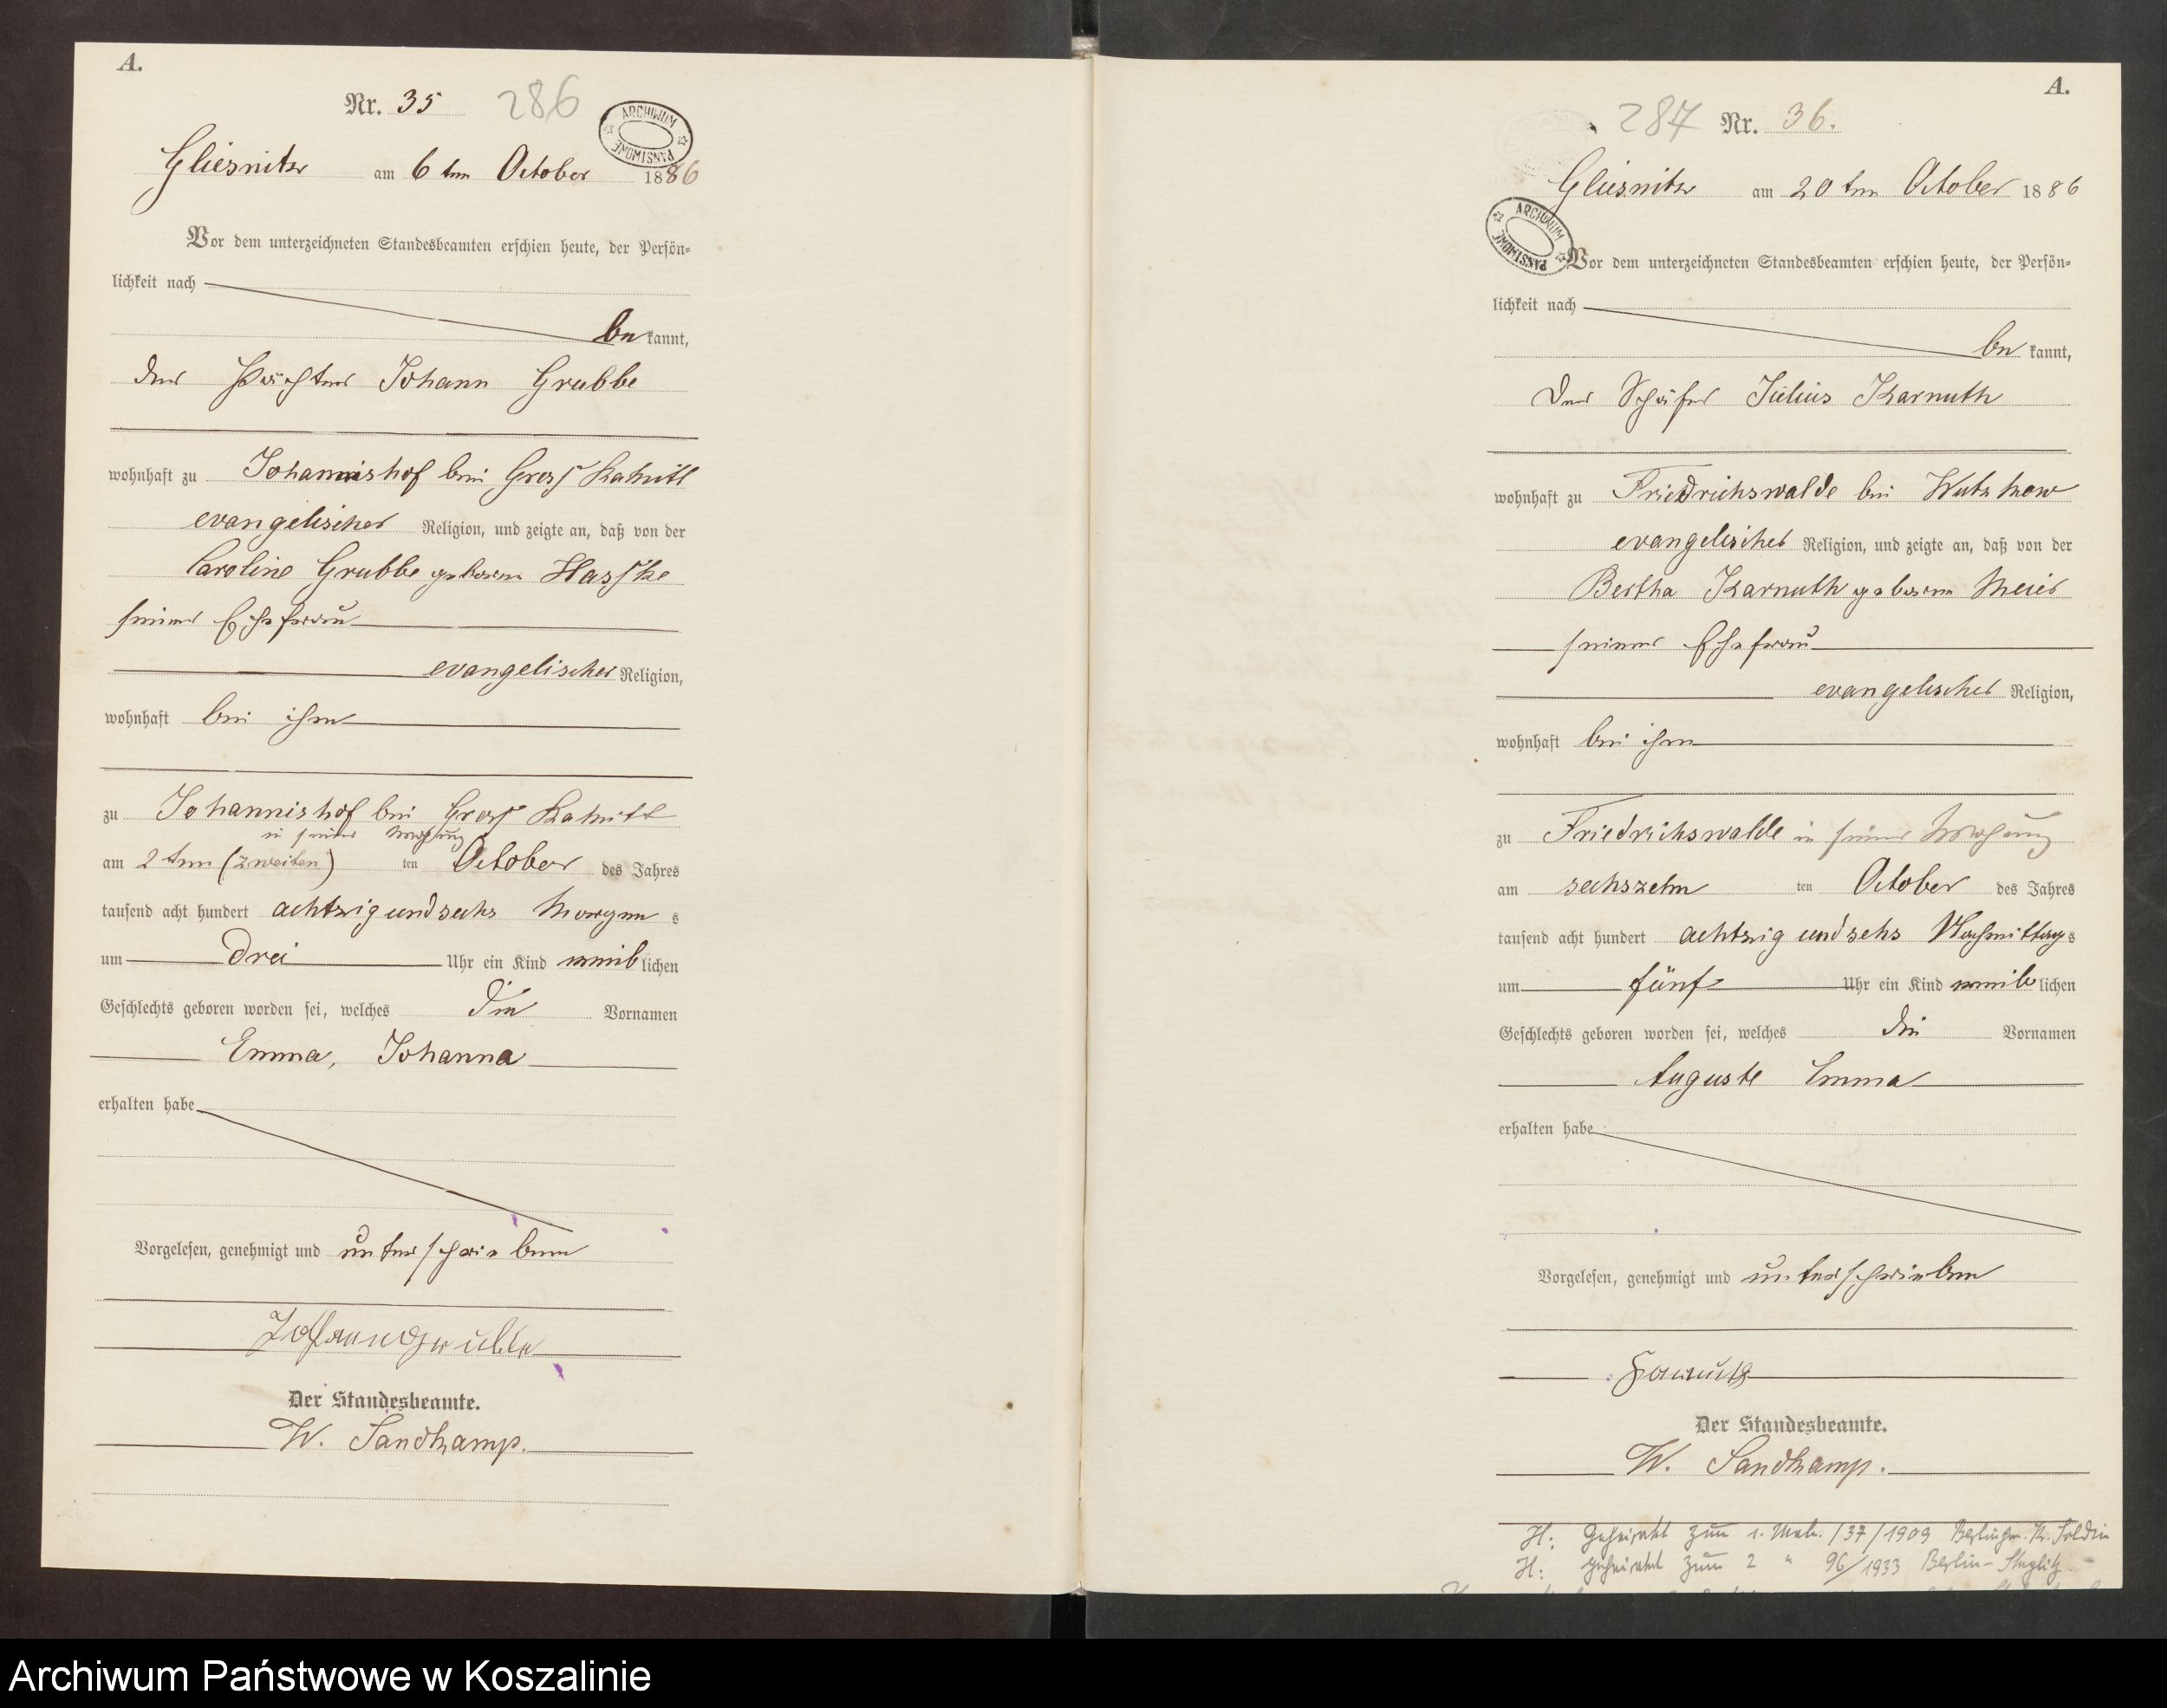 A.
Nr. 35 286
ARCHIWUM PAŃSTWOWE
Gliesnitz am 6ten October 1886
Vor dem unterzeichneten Standesbeamten erschien heute, der Persön-
lichkeit nach
be kannt,
der Pächter Johann Grubbe
wohnhaft zu Johannishof bei Gross
evangelischer Religion, und zeigte an, daß von der
Caroline Grubbe geborene
seiner Ehefrau
evangelischer Religion,
wohnhaft bei ihm
zu Johannishof bei Gross
in seiner Wohnung
am 2ten (zweiten) ten October des Jahres
tausend acht hundert achtzig und sechs Morgen s
um drei Uhr ein Kind weib lichen
Geschlechts geboren worden sei, welches die Vornamen
Emma, Johanna
erhalten habe
Vorgelesen, genehmigt und unterschrieben
Johann Grubbe
Der Standesbeamte.
W. Sandkamp.
A.
287 Nr. 36.
Gliesnitz am 20ten October 1886
ARCHIWUM PAŃSTWOWE
Vor dem unterzeichneten Standesbeamten erschien heute, der Persön-
lichkeit nach
be kannt,
Der Schäfer Julius Karnuth
wohnhaft zu Friedrichswalde bei Wutzkow
evangelischer Religion, und zeigte an, daß von der
Bertha Karnuth geborene Meier
seiner Ehefrau
evangelischer Religion,
wohnhaft bei ihm
zu Friedrichswalde in seiner Wohnung
am sechszehn ten October des Jahres
tausend acht hundert achtzig und sechs Nachmittag s
um fünf Uhr ein Kind weib lichen
Geschlechts geboren worden sei, welches die Vornamen
Auguste Emma
erhalten habe
Vorgelesen, genehmigt und unterschrieben
Karnuth
Der Standesbeamte.
W. Sandkamp.
H: Geheiratet zum 1. Male /37/1909 Kr. Soldin
H: geheiratet zum 2 " 96/1933 Berlin-Steglitz
Archiwum Państwowe w Koszalinie